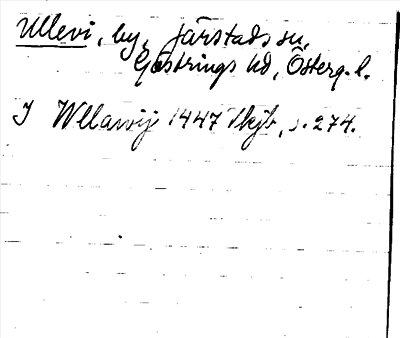 Ullevi, by, Järstads sn,
Göstrings hd, Österg. l.
I Wllawij 1447 Vkjb, s. 274.